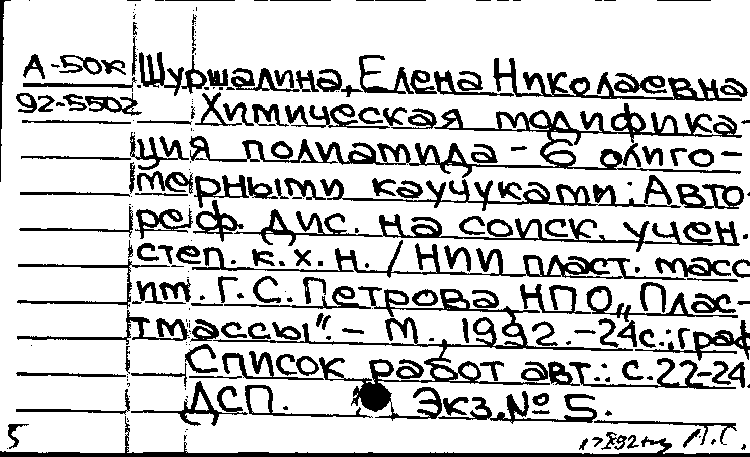 А-50к Шуршалина, Елена Николаевна
92-5502 Химическая модифика-
ция полиамида-6 олиго-
мерными каучуками: Авто-
реф. дис. на соиск. учен.
степ. к.х.н. / НИИ пласт. масс
им. Г.С. Петрова, НПО „Плас-
тмассы". - М., 1992. - 24с.; граф
Список работ авт.: с.22-24.
ДСП. Экз.№ 5.
5 Л.С.